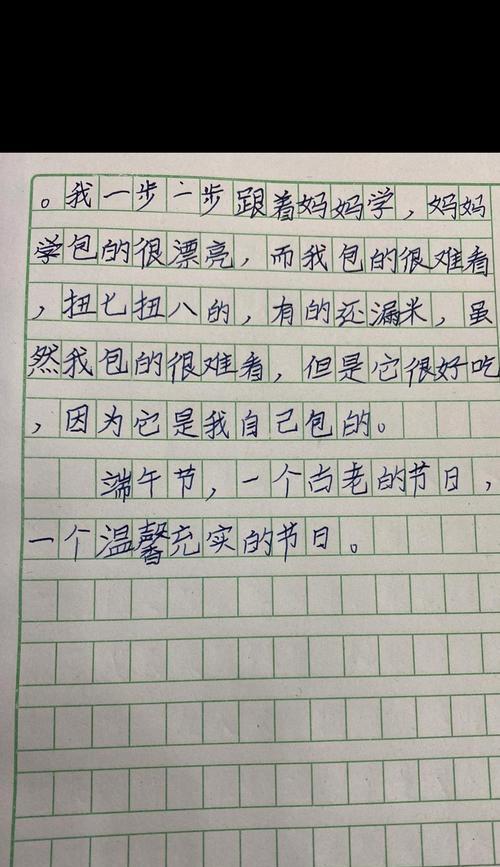 。我一步一步跟着妈妈学，妈妈
学包的很漂亮，而我包的很难看
，扭七扭八的，有的还漏米，虽
然我包的很难看，但是它很好吃
，因为它是我自己包的。
端午节，一个古老的节日，
一个温馨充实的节日。